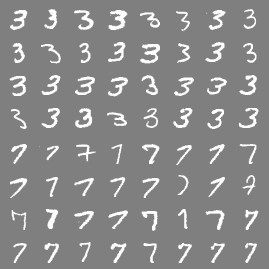 3 3 3 3 3 3 3 3
3 3 3 3 3 3 3 3
3 3 3 3 3 3 3 3
3 3 3 3 3 3 3 3
7 7 7 7 7 7 7 7
7 7 7 7 7 7 7 7
7 7 7 7 7 7 7 7
7 7 7 7 7 7 7 7